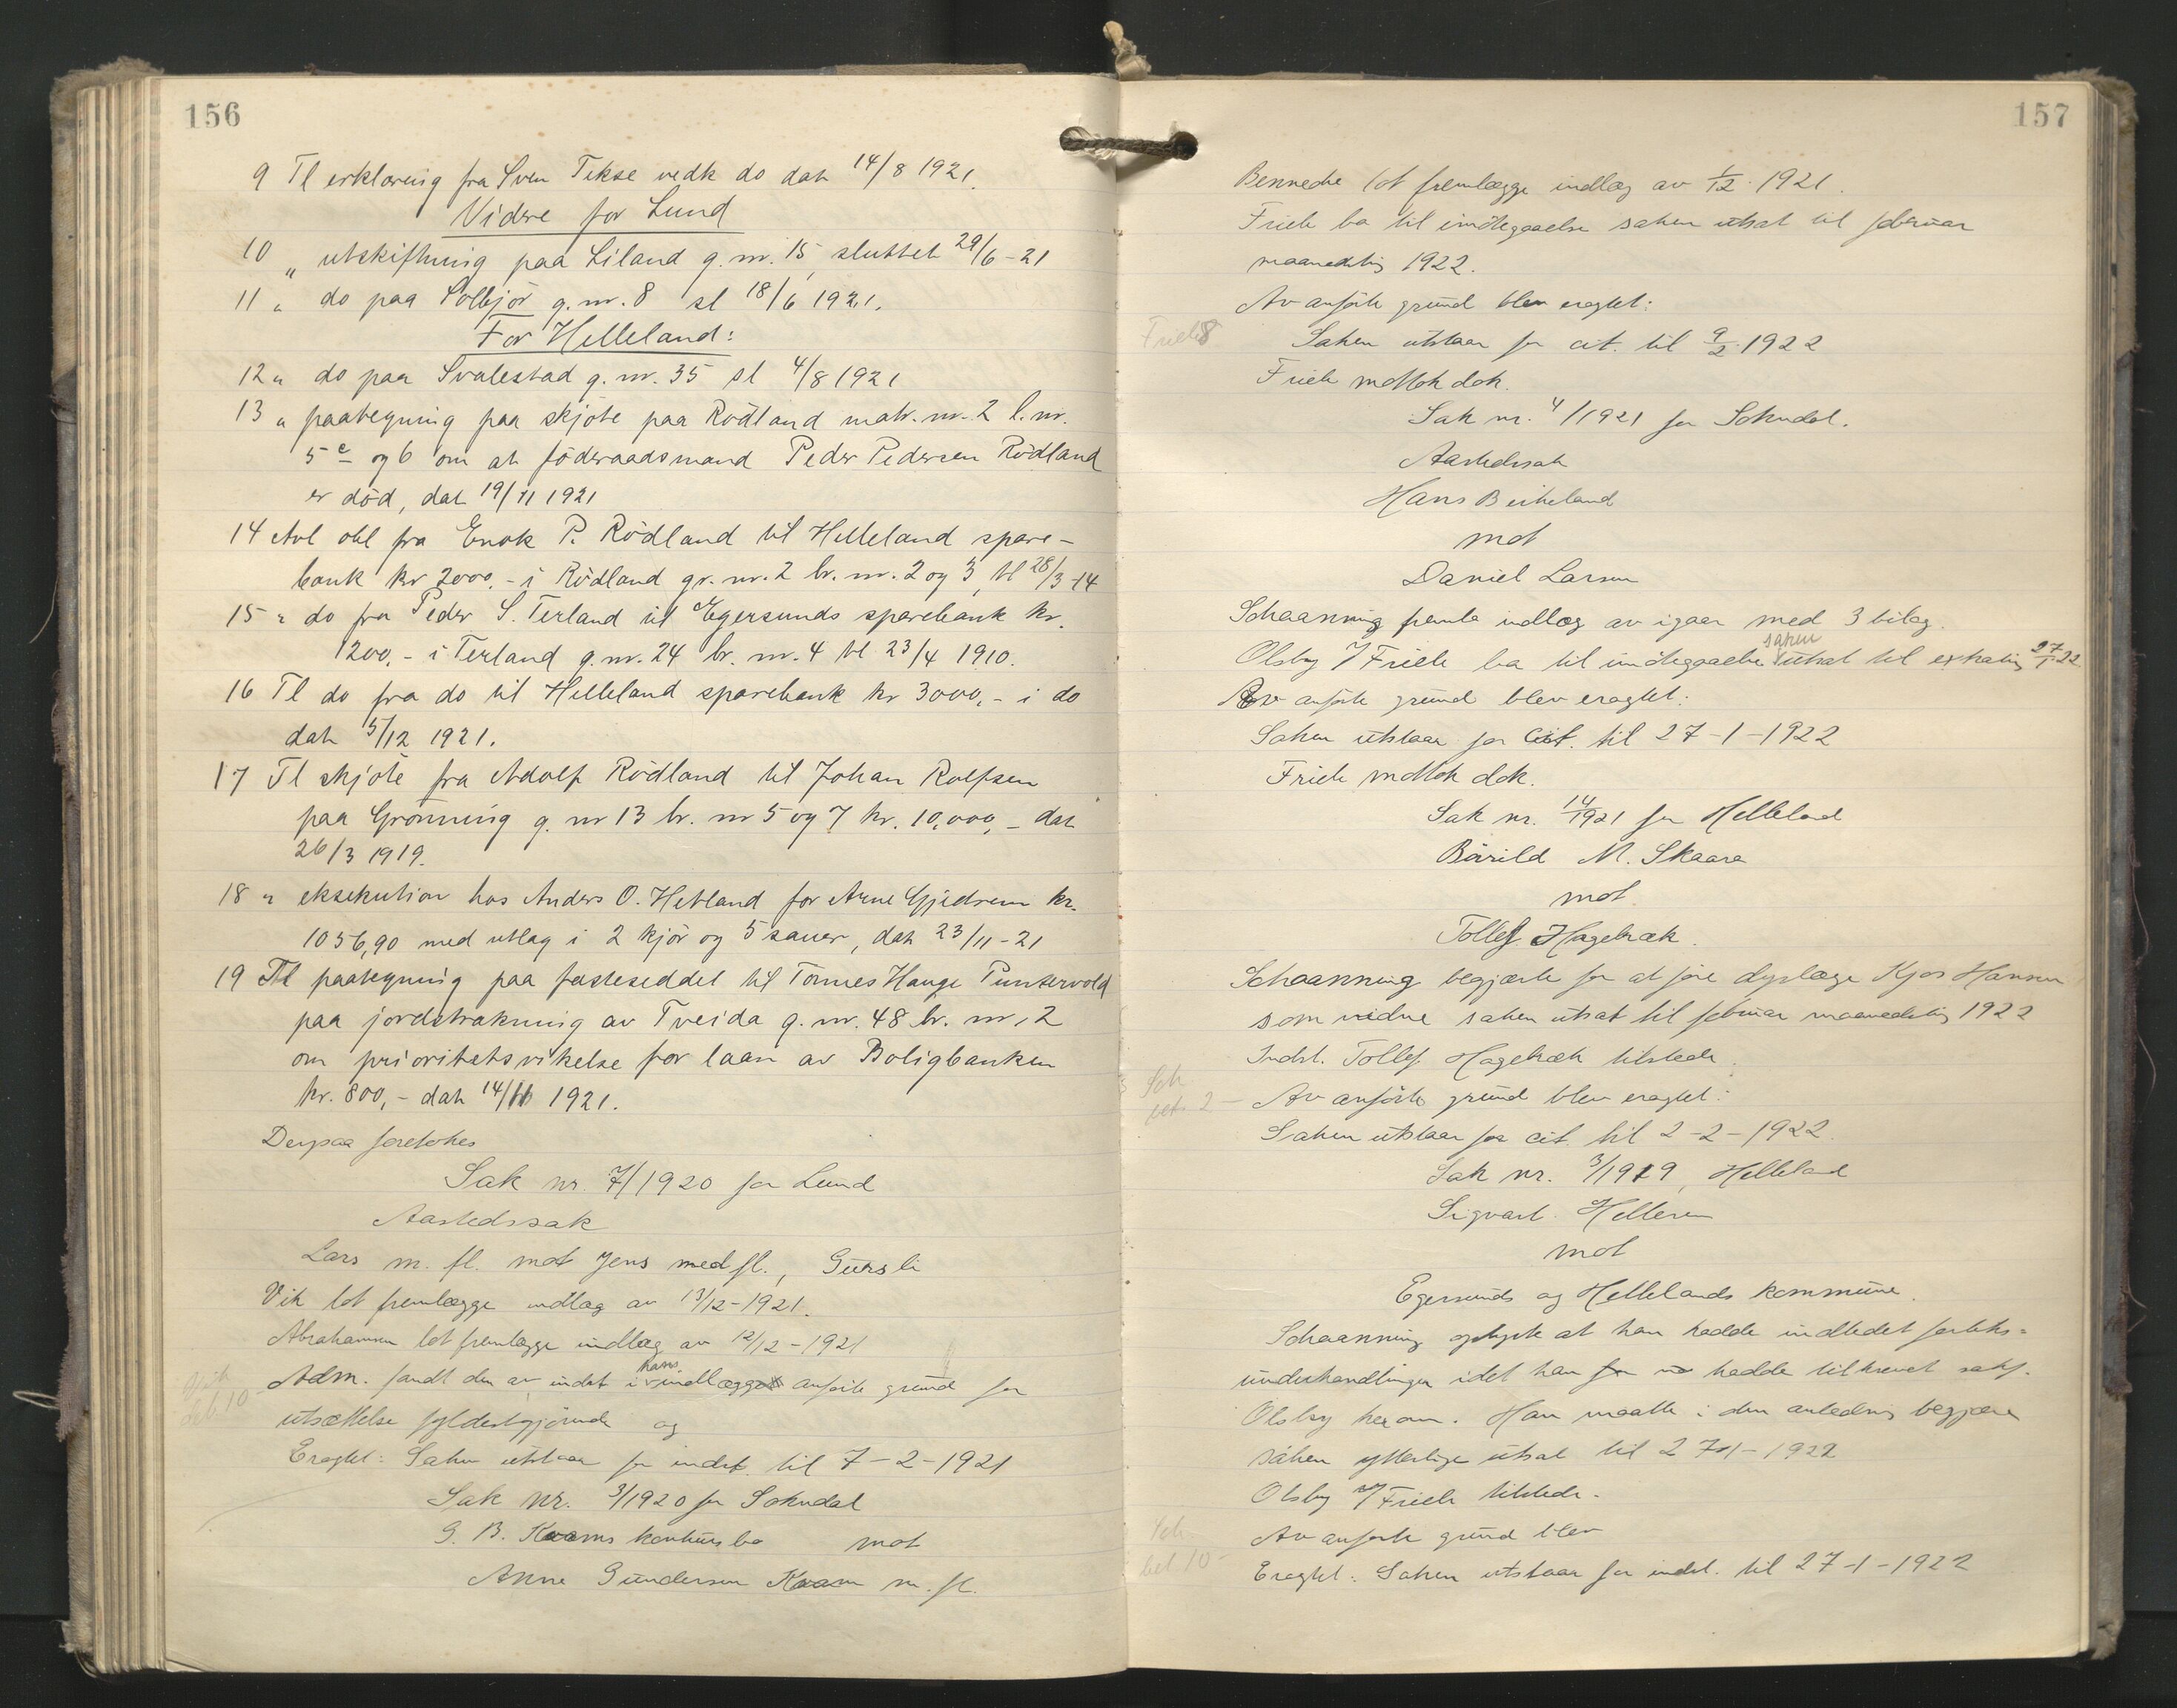 156
9 Tl erklæring fra Sven Tekse vedk do dat 14/8 1921.
Videre for Lund
10 " utskiftning paa Liland g. nr. 15, sluttet 29/6-21
11 " do paa Solbjör g. nr. 8 sl 18/6 1921.
For Helleland:
12 " do paa Svalestad g. nr. 35 sl 4/8 1921
13 " paategning paa skjöte paa Rödland matr. nr. 2 l. nr.
5 c og 6 om at föderaadsmand Peder Pedersen Rödland
er död, dat 19/11 1921
14 Avl obl fra Enok P. Rödland til Helleland spare-
bank kr 2000,- i Rödland gr. nr. 2 br. nr. 2 og 3, tl 28/3-14
15 " do fra Peder S. Terland til Egersunds sparebank kr.
1200,- i Terland g. nr. 24 br. nr. 4 tl 23/4 1910.
16 Tl do fra do til Helleland sparebank kr 3000,- i do
dat 5/12 1921.
17 Tl skjöte fra Adolf Rödland til Johan Rolfsen
paa Grönning g. nr 13 br. nr 5 og 7 kr. 10,000,- dat
26/3 1919.
18 " eksekution hos Anders O. Hetland for Arne Gjedrem kr.
1056,90 med utlag i 2 kjör og 5 sauer, dat 23/11-21
19 Tl paategning paa festeseddel til Tönnes Hauge Puntervold
paa jordstrækning av Tveida g. nr. 48 br. nr. 2
om prioritetsvikelse for laan av Boligbanken
kr. 800,- dat 14/11 1921.
Derpaa foretokes
Sak nr. 7/1920 for Lund
Aastedssak
Lars m. fl. mot Jens med fl., Gursli
Vik lot fremlægge indlæg av 13/12-1921.
Abrahamsen lot fremlægge indlæg av 12/12-1921
Adm. fandt den av indst i hans indlægg anförte grund for
utsættelse fyldestgjörende og
Eragtet: Saken utstaar for indst. til 7-2-1921
Sak nr. 3/1920 for Sokndal
G. B. Kvams konkursbo mot
Anne Gundersen Kvam m. fl.
157
Benneche lot fremlægge indlæg av 1/12. 1921.
Friele ba til imötegaaelse saken utsat til februar
maanedsting 1922.
Av anförte grund blev eragtet:
Friele 8
Saken utstaar for cit. til 9/2. 1922
Friele mottok dok.
Sak nr. 4/1921 for Sokndal.
Aastedssak
Hans Birkeland
mot
Daniel Larsen
Schaanning fremla indlæg av igaar med 3 bilag.
Olsby v/ Friele ba til imötegaaelse saken utsat til extrating 27/1-22
Av anförte grund blev eragtet:
Saken utstaar for cit. til 27-1-1922
Friele mottok dok.
Sak nr. 14/1921 for Helleland
Bårild M. Skaara
mot
Tollef Hagebæk.
Schaanning begjærte for at före dyrlæge Kjos Hansen
som vidne saken utsat til februar maanedsting 1922
Indst. Tollef Hagebæk tilstede.
Sch
bet. 2 -
Av anförte grund blev eragtet:
Saken utstaar for cit. til 2-2-1922.
Sak nr. 3/1919, Helleland
Sigvart Helleren
mot
Egersunds og Hellelands kommune.
Schaanning oplyste at han hadde indledet forliks-
underhandlinger idet han hadde tilskrevet sakf.
Olsby herom. Han maatte i den anledning begjære
saken ytterlige utsat til 27-1-1922
Olsby v/ Friele tilstede.
Av anförte grund blev
Sch
bet 10-
Eragtet: Saken utstaar for indst. til 27-1-1922